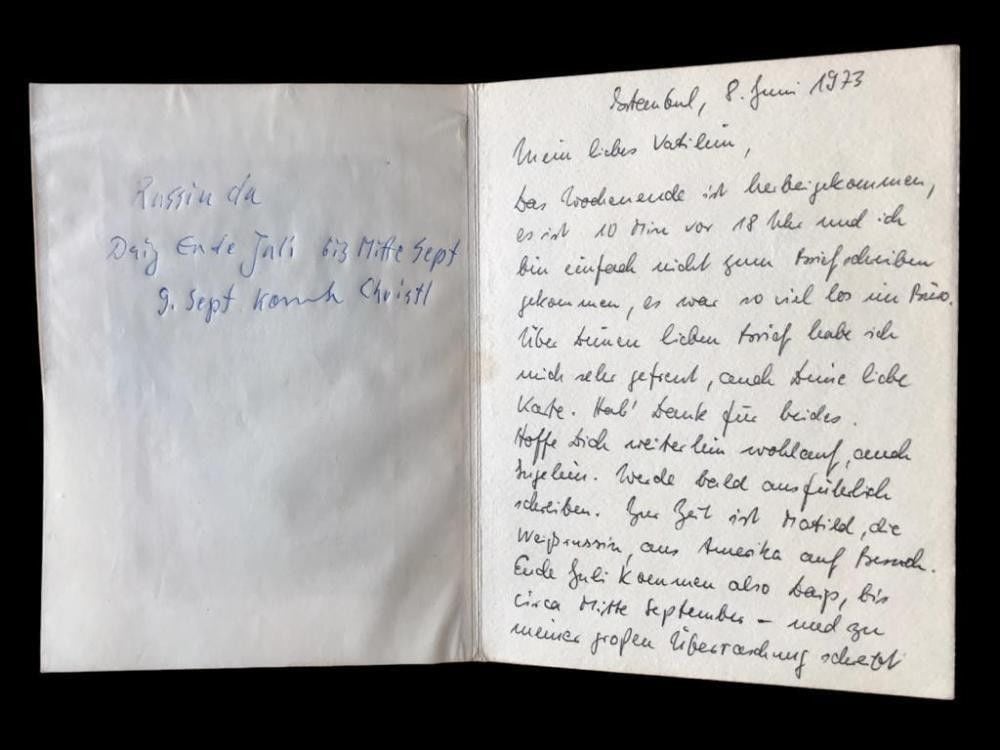 Russin da
Ende Juli bis Mitte Sept
9. Sept kommt Christl
Istambul, 8. Juni 1973
Mein liebes Vatilein,
Das Wochenende ist herbeigekommen,
es ist 10 Min vor 18 Uhr und ich
bin einfach nicht zum Briefschreiben
gekommen, es war so viel los im Büro.
Über Deinen lieben Brief habe ich
mich sehr gefreut, auch Deine liebe
Karte. Hab' Dank für beides.
Hoffe Dich weiterhin wohlauf, auch
Ingelein. Werde bald ausführlich
schreiben. Zur Zeit ist Matild, die
Weißrussin, aus Amerika auf Besuch.
Ende Juli kommen also, bis
circa Mitte September – und zu
meiner großen Überraschung schreibt